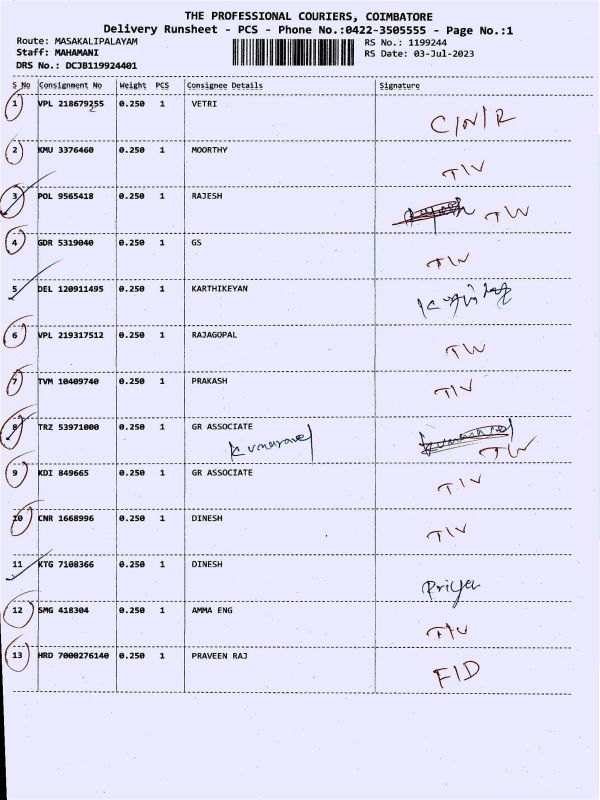 THE PROFESSIONAL COURIERS, COIMBATORE
Delivery Runsheet - PCS - Phone No.:0422-3505555 - Page No.:1
Route: MASAKALIPALAYAM RS No.: 1199244
Staff: MAHAMANI RS Date: 03-Jul-2023
DRS No.: DCJB119924401
S No Consignment No Weight PCS Consignee Details Signature
1 VPL 218679255 0.250 1 VETRI C/N/R
2 KMU 3376460 0.250 1 MOORTHY TIV
3 POL 9565418 0.250 1 RAJESH TW
4 GDR 5319040 0.250 1 GS TIV
5 DEL 120911495 0.250 1 KARTHIKEYAN
6 VPL 219317512 0.250 1 RAJAGOPAL TW
7 TVM 10409740 0.250 1 PRAKASH TIV
8 TRZ 53971000 0.250 1 GR ASSOCIATE TW
9 KDI 849665 0.250 1 GR ASSOCIATE TIV
10 CNR 1668996 0.250 1 DINESH TIV
11 KTG 7108366 0.250 1 DINESH Priya
12 SMG 418304 0.250 1 AMMA ENG TIV
13 HRD 7000276140 0.250 1 PRAVEEN RAJ FID